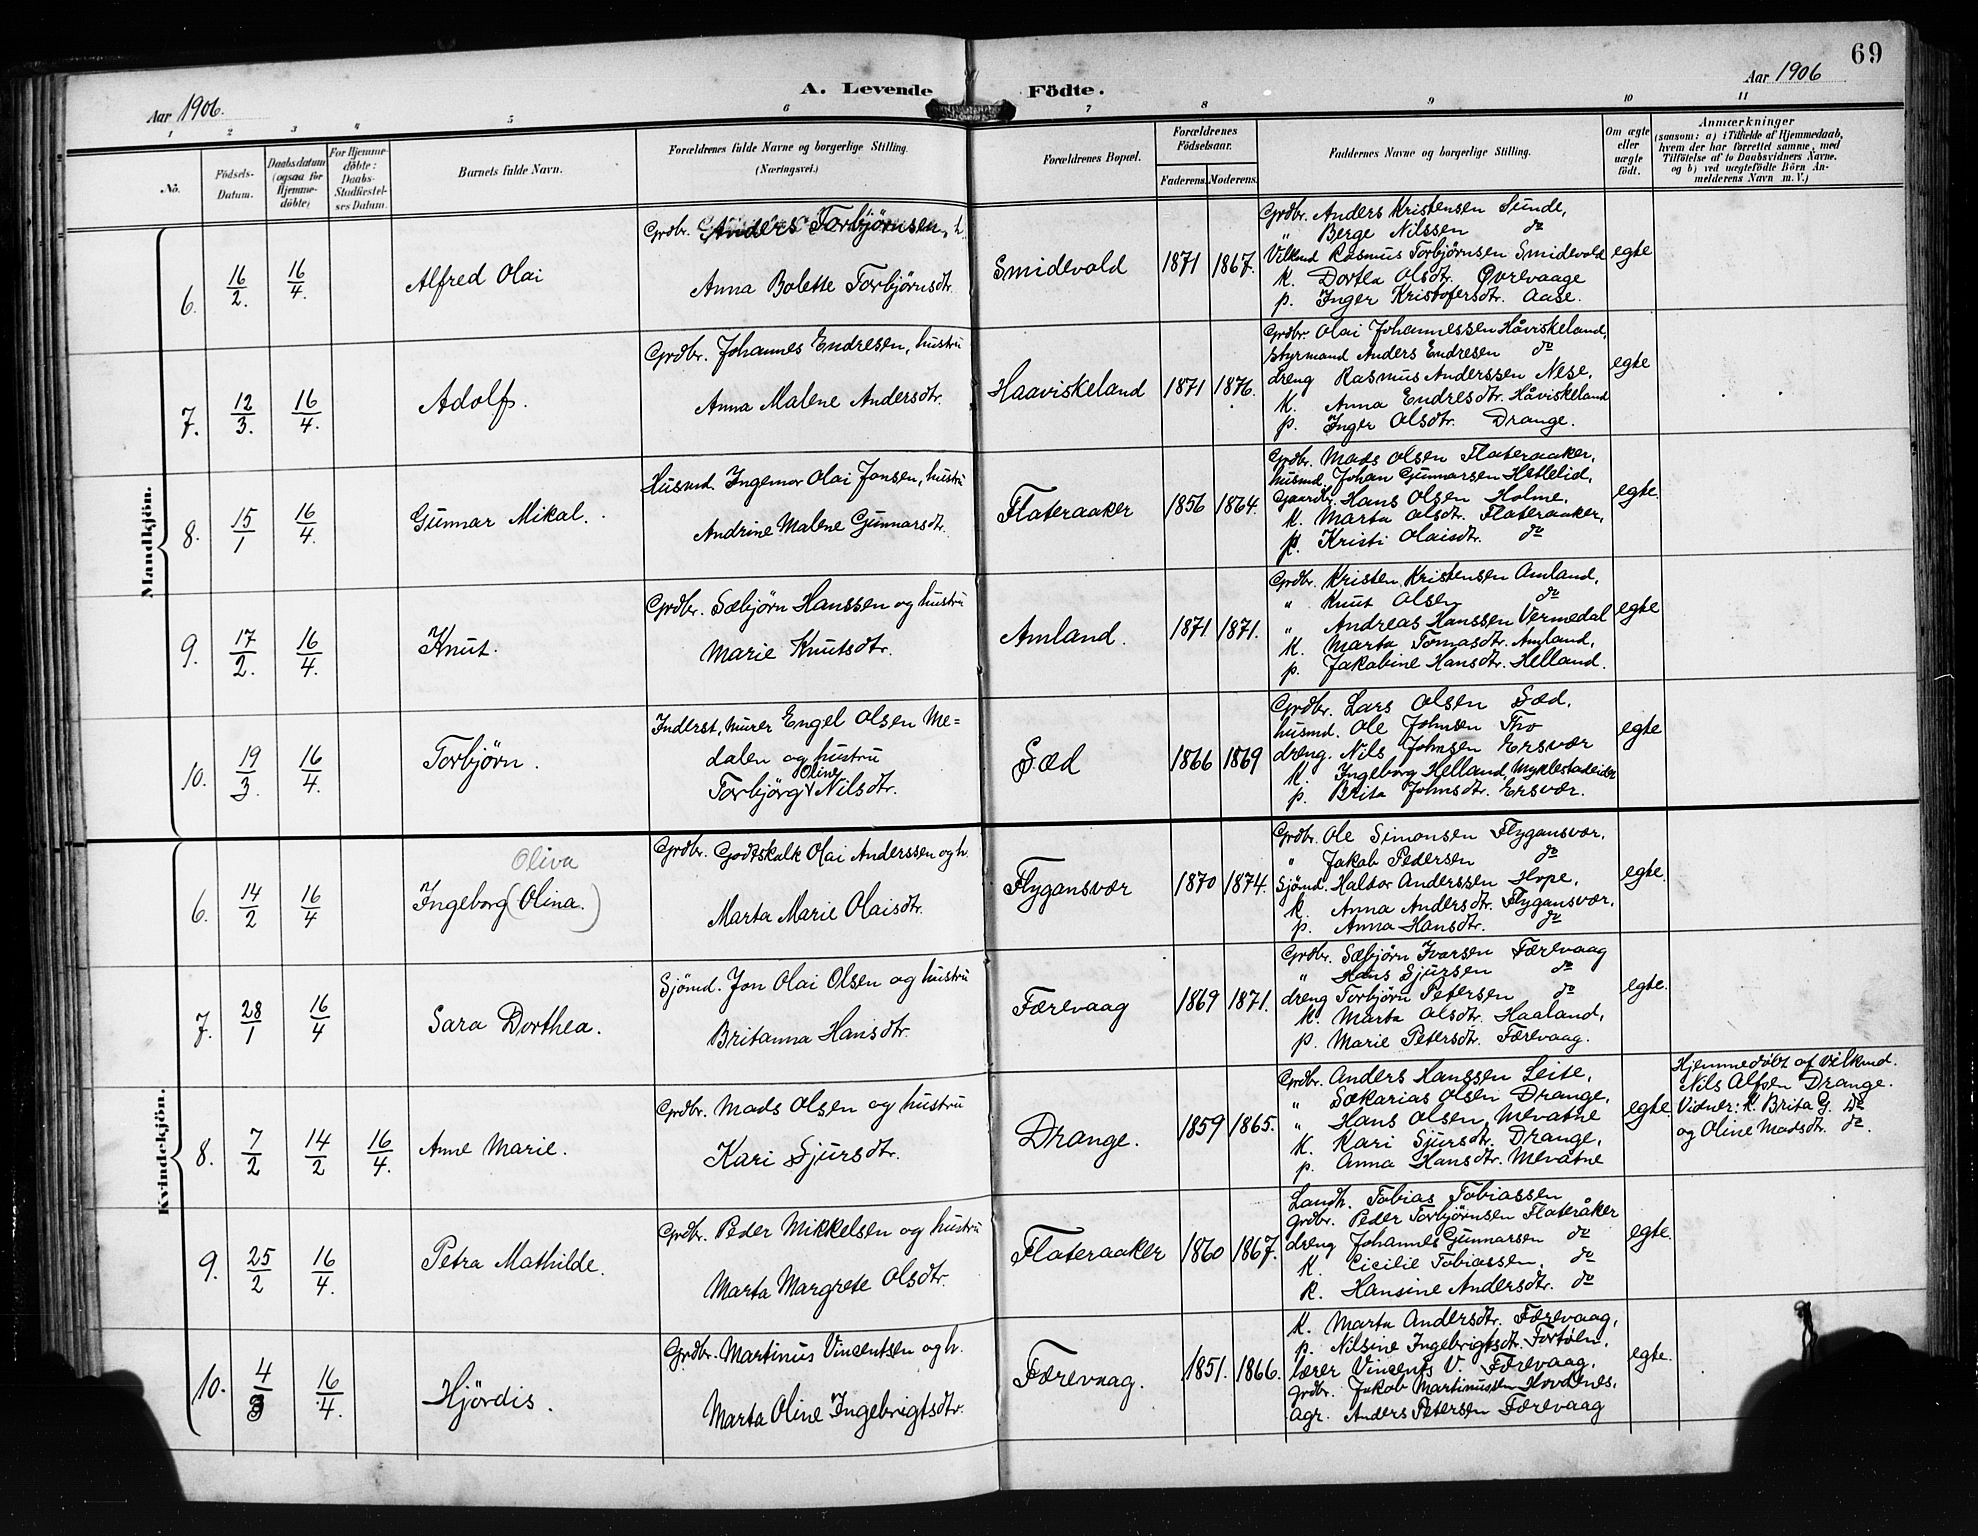 69
Aar 1906.
A. Levende Födte.
Aar 1906
1 2 3 4 5 6 7 8 9 10 11
No.
Födsels-Datum.
Daabsdatum (ogsaa for Hjemmedöbte)
For Hjemmedöbte: Daabs-Stadfæstelses Datum.
Barnets fulde Navn.
Forældrenes fulde Navne og borgerlige Stilling.
(Næringsvei.)
Forældrenes Bopæl.
Forældrenes Födselsaar.
Faderens. Moderens.
Faddernes Navne og borgerlige Stilling.
Om ægte eller uægte födt.
Anmærkninger
(saasom: a) i Tilfælde af Hjemmedaab,
hvem der har forrettet samme, med
Tilföielse af to Daabsvidners Navne,
og b) ved uægtefödte Börn An-
melderens Navn m. V.)
Mandkjön.
6. 16/2. 16/4. Alfred Olai
Grdbr. Anders Torbjørnsen, h.
Anna Bolette Torbjørnsdtr.
Smidevold 1871 1867.
Grdbr. Anders Kristensen Sunde,
" Berge Nilssen do
Vilkmd Rasmus Torbjørnsen Smidevold
K. Dortea Olsdtr. Øvrevaage
p. Inger Kristofersdtr. Aase.
egte
7. 12/3. 16/4. Adolf.
Grdbr. Johannes Endresen, hustru
Anna Malene Andersdtr.
Haaviskeland 1871 1876.
Grdbr. Olai Johannessen Håviskeland,
Styrmand Anders Endresen do
dreng Rasmus Anderssen Nese,
K. Anna Endresdtr. Håviskeland
p. Inger Olsdtr. Drange.
egte
8. 15/1 16/4. Gunnar Mikal.
Husmd. Ingemar Olai Jansen, hustru
Andrine Malene Gunnarsdtr.
Flateraaker 1856 1864.
Grdbr. Mads Olsen Flateraaker,
husmd. Johan Gunnarsen Hettelid,
Gaardbr. Hans Olsen Holme,
K. Marta Olsdtr. Flateraaker,
p. Kristi Olaisdtr. do
egte.
9. 17/2. 16/4. Knut.
Grdbr. Sæbjørn Hanssen og hustru
Marie Knutsdtr.
Amland. 1871 1871.
Grdbr. Kristen Kristensen Amland,
" Knut Olsen do
" Andreas Hanssen Vermedal
K. Marta Tomasdtr. Amland,
p. Jakobine Hansdtr. Helland.
egte
10. 19/3. 16/4. Torbjørn.
Inderst, murer Engel Olsen Me=
dalen og hustru
Torbjørg Oline Nilsdtr.
Sæd 1866 1869
Grdbr. Lars Olsen Sæd,
husmd. Ole Johnsen Tho
dreng. Nils Johnsen Ersvær
K. Ingeborg Helland, Myklestadeidet
p. Brita Johnsdtr. Ersvær.
egte
Kvindekjön.
6. 14/2 16/4
Oliva
Ingeborg (Olina.)
Grdbr. Godtskalk Olai Anderssen og h.
Marta Marie Olaisdtr.
Flygansvær 1870 1874.
Grdbr. Ole Simonsen Flygansvær,
" Jakob Pedersen do
Sjömd. Haldor Anderssen Hope,
K. Anna Andersdtr. Flygansvær,
p. Anna Hansdtr. do
egte.
7. 28/1 16/4 Sara Dorthea.
Sjömd. Jon Olai Olsen og hustru
Britanna Hansdtr.
Færevaag 1869 1871.
Grdbr. Sæbjørn Ivarsen Færevaag
" Hans Sjursen do
dreng Torbjørn Petersen do
K. Marta Olsdtr. Haaland,
p. Marie Petersdtr. Færevaag.
egte.
8. 7/2 14/2 16/4. Anne Marie.
Grdbr. Mads Olsen og hustru
Kari Sjursdtr.
Drange. 1859 1865.
Grdbr. Anders Hanssen Leite,
" Sakarias Olsen Drange,
" Hans Olsen Mevatne
K. Kari Sjursdtr. Drange,
p. Anna Hansdtr. Mevatne
egte.
Hjemmedøbt af Vilkmd.
Nils Alfsen Drange.
Vidner: K. Brita G. do
og Oline Madsdtr. do.
9. 25/2 16/4. Petra Mathilde.
Grdbr. Peder Mikkelsen og hustru
Marta Margrete Olsdtr.
Flateraaker 1860 1867.
Landh. Tobias Tobiassen
grdbr. Peder Torbjørnsen Flateråker
dreng Johannes Gunnarsen do
K. Cicilie Tobiassen, do
K. Hansine Andersdtr. do
egte.
10. 4/3 16/4. Hjördis.
Grdbr. Martinus Vincentsen og h.
Marta Oline Ingebrigtsdtr.
Færevaag. 1851. 1866.
K. Marta Andersdtr. Færevaag,
p. Nilsine Ingebrigtsdtr. Tortøen,
lærer Vincents V. Færevaag,
grdbr. Jakob Martinussen Hovdenes,
agr. Anders Petersen Færevaag
egte.